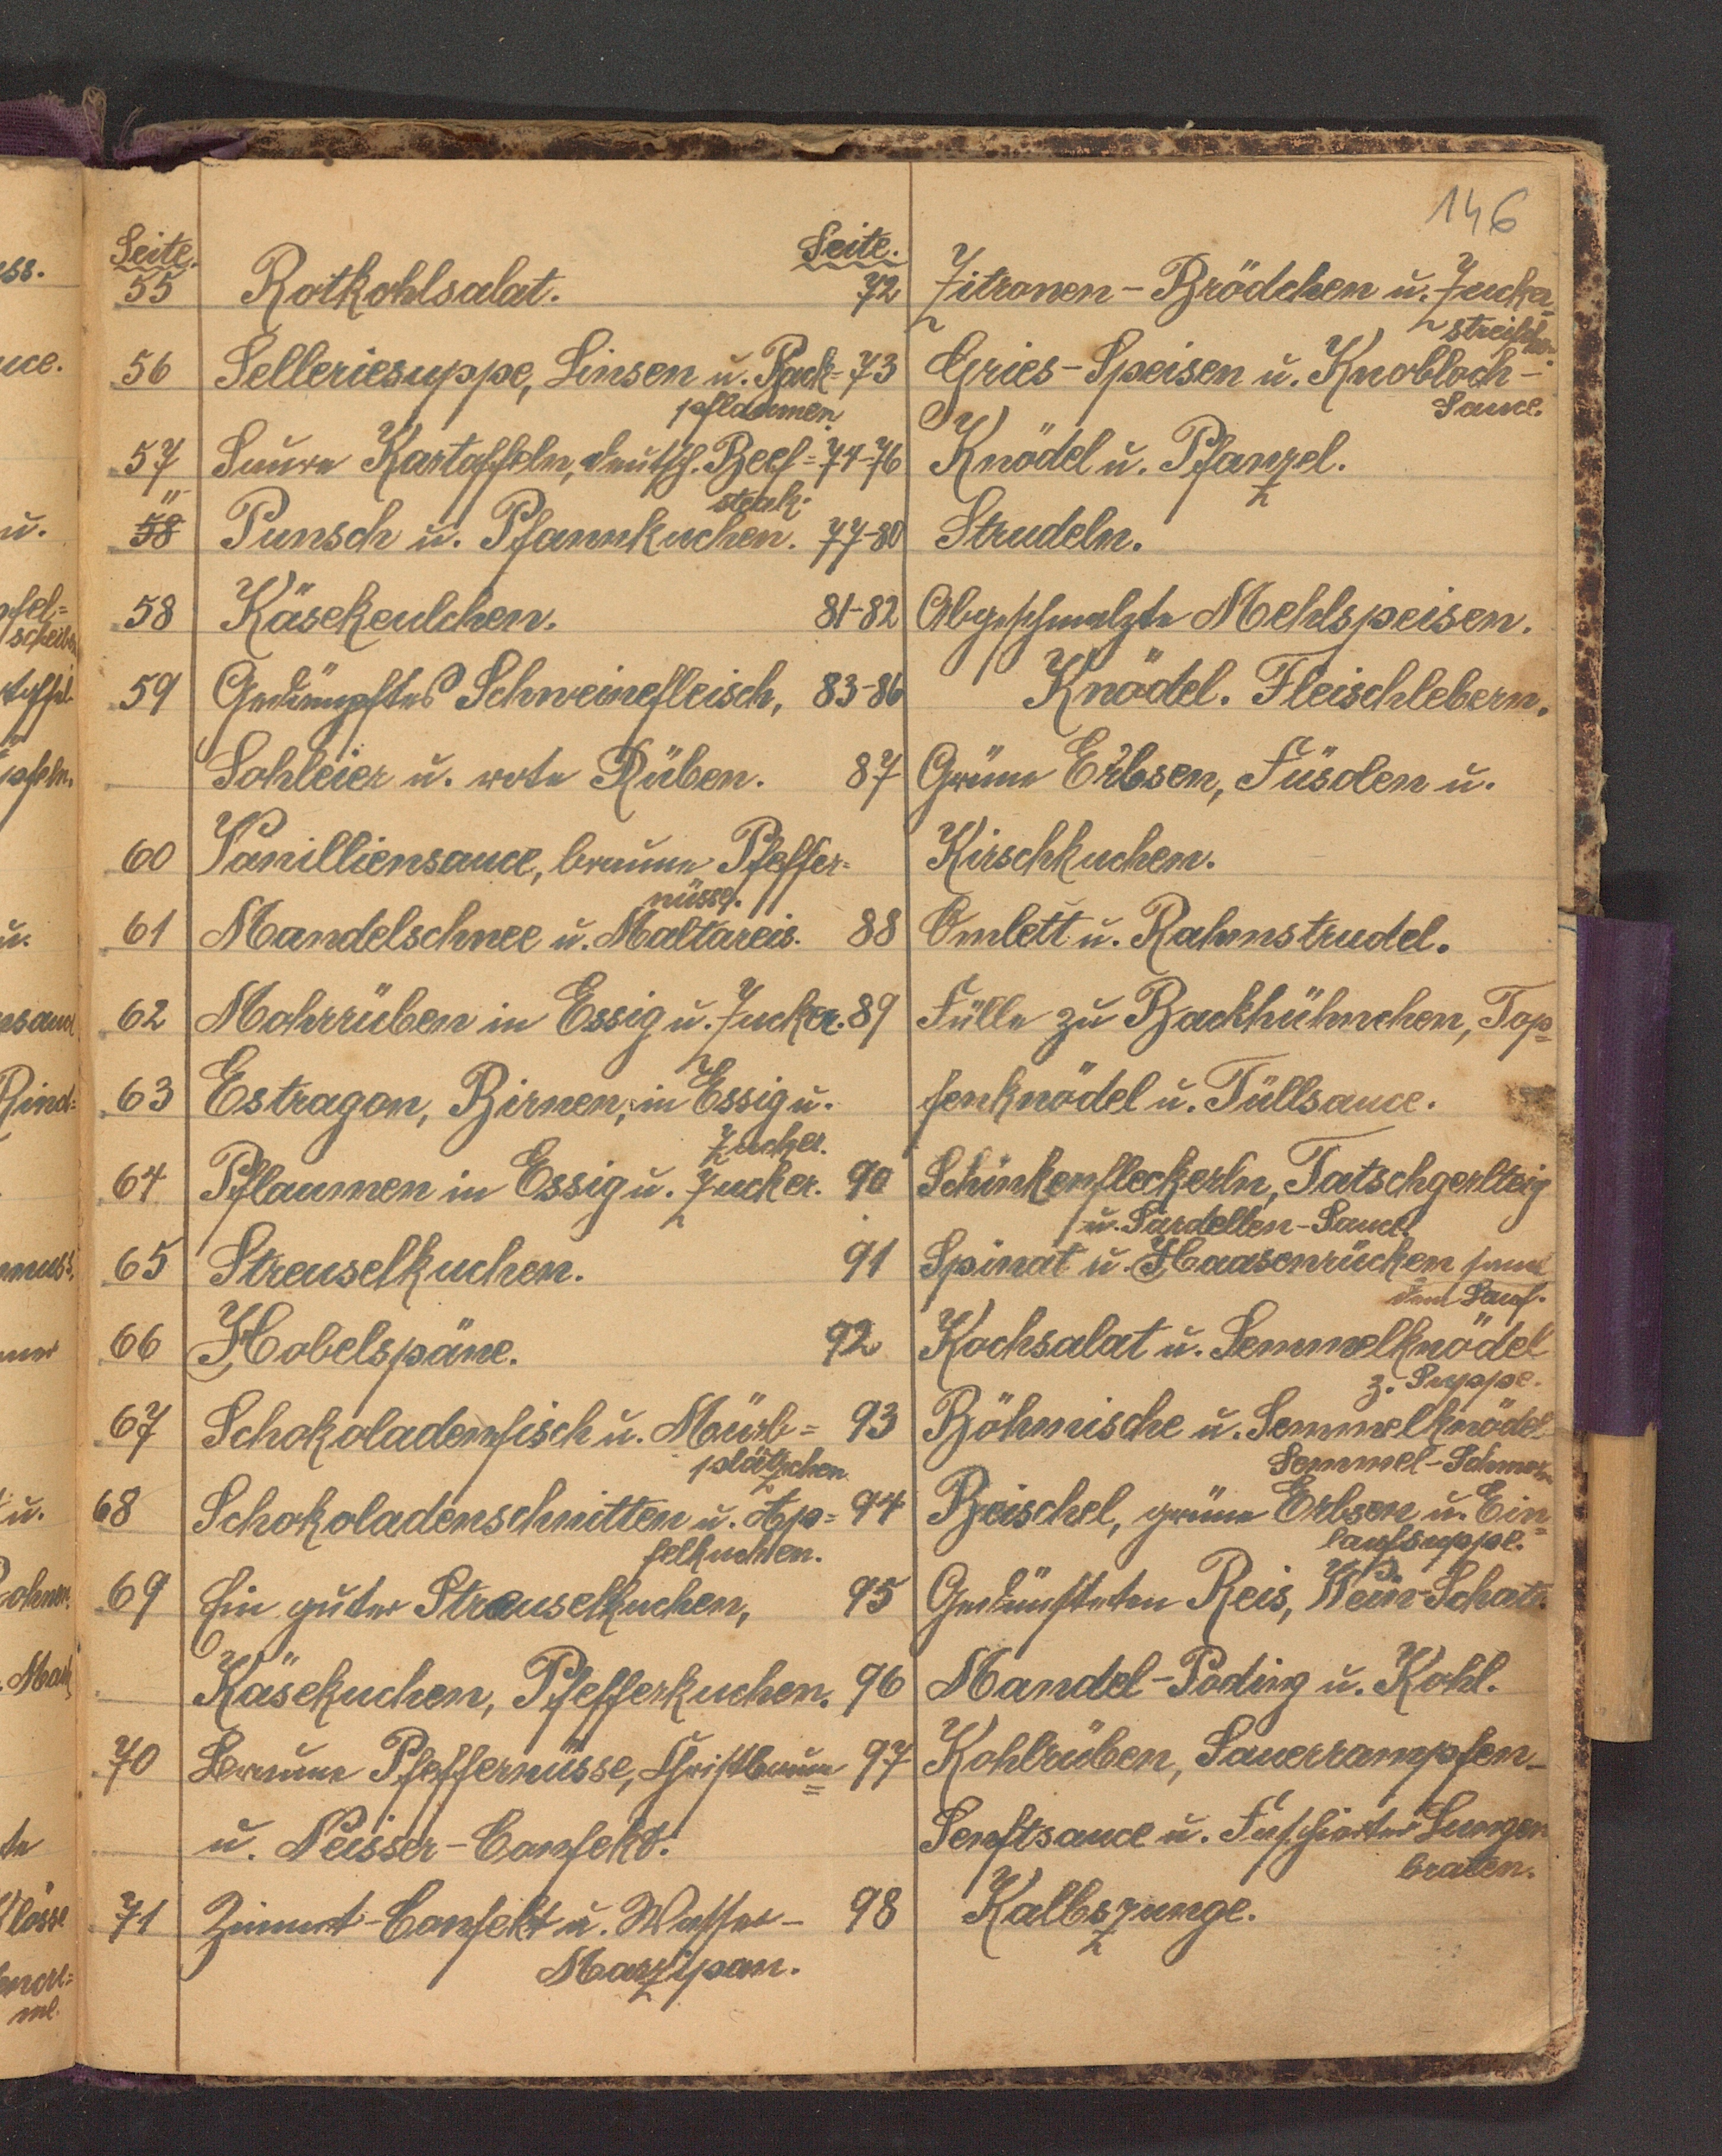 146
Seite.
55 Rotkohlsalat.
56 Selleriesuppe, Linsen u. Back=
pflaumen.
57 Saure Kartoffeln, deutsch. Beef=
steak.
" 58 Punsch u. Pfannkuchen.
58 Käsekeulchen.
59 Gedämpftes Schweinefleisch,
Sohleier u. rote Rüben.
60 Vanilliensauce, braune Pfeffer=
nüsse.
61 Mandelschnee u. Maltareis.
62 Mohrrüben in Essig u. Zucker.
63 Estragon, Birnen, in Essig u.
Zucker.
64 Pflaumen in Essig u. Zucker.
65 Streuselkuchen.
66 Hobelspäne.
67 Schokoladenfisch u. Mürb=
plätzchen
68 Schokoladenschnitten u. Ap=
felkuchen.
69 Ein guter Streuselkuchen,
Käsekuchen, Pfefferkuchen.
70 Braune Pfeffernüsse, Christbaum=
u. Neisser-Confekt.
71 Zimmt-Confekt u. Wasser-
Marzipan.
Seite.
72 Zitronen-Brödchen u. Zucker=
73 Gries-Speisen u. Knobloch-
Sauce.
74-76 Knödel u. Pfanzel.
77-80 Strudeln.
81-82 Abgeschmalzte Mehlspeisen.
83-86 Knödel. Fleischlebern.
87 Grüne Erbsen, Füsolen u.
Kirschkuchen.
88 Omlett u. Rahmstrudel.
89 Fülle zu Backhühnchen, Top=
fenknödel u. Tüllsauce.
90 Schinkenfleckerln, Tatschgerlteig
u. Sardellen-Sauce.
91 Spinat u. Haasenrücken
92 Kochsalat u. Semmelknödel
z. Suppe.
93 Böhmische u. Semmelknödel
Semmel-Schmarn
94 Beischel, grüne Erbsen u. Ein=
laufsuppe.
95 Gedünsteten Reis, Wein-Schato.
96 Mandel-Poding u. Kohl.
97 Kohlrüben, Sauerrampfen-
Senftsauce u. Faschierter Lungen
braten.
98 Kalbszunge.